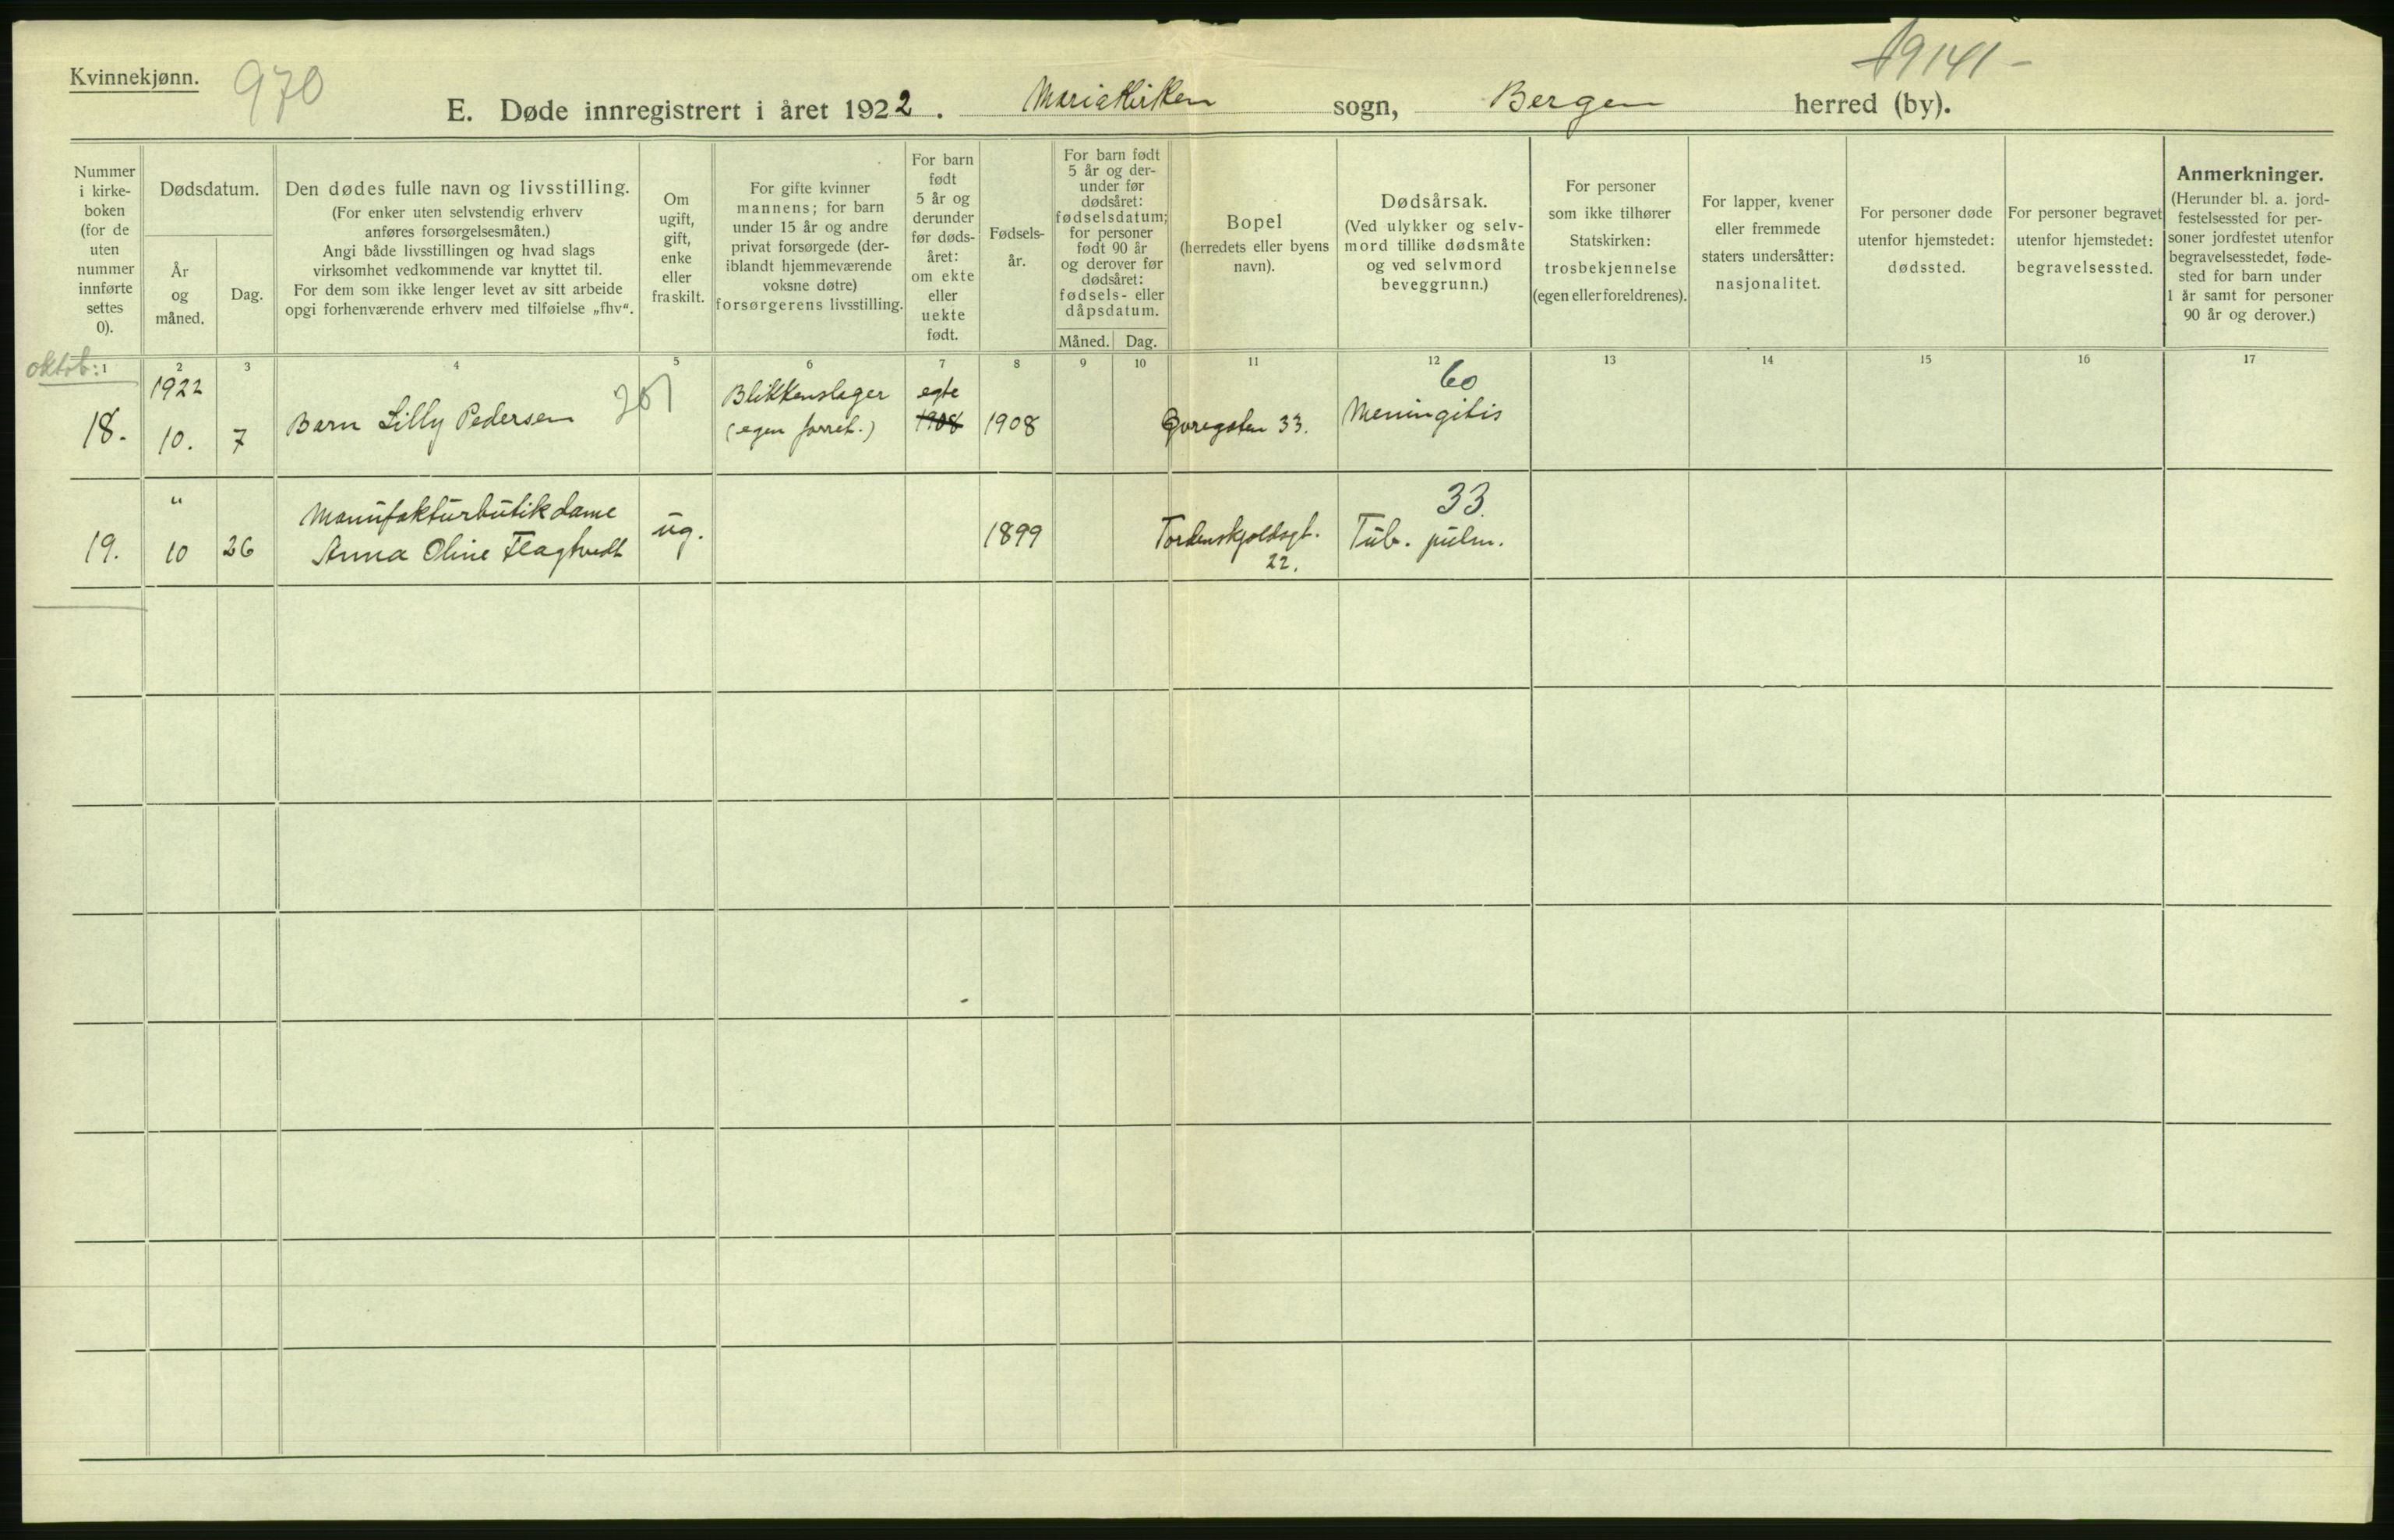 Kvinnekjønn.
970
19141 -
E. Døde innregistrert i året 1922. Mariakirken sogn, Bergen herred (by).
Nummer
i kirke-
boken
(for de
uten
nummer
innførte
settes
0).
Dødsdatum.
År
og
måned.
Dag.
Den dødes fulle navn og livsstilling.
(For enker uten selvstendig erhverv
anføres forsørgelsesmåten.)
Angi både livsstillingen og hvad slags
virksomhet vedkommende var knyttet til.
For dem som ikke lenger levet av sitt arbeide
opgi forhenværende erhverv med tilføielse „fhv“.
Om
ugift,
gift,
enke
eller
fraskilt.
For gifte kvinner
mannens; for barn
under 15 år og andre
privat forsørgede (der-
iblandt hjemmeværende
voksne døtre)
forsørgerens livsstilling.
For barn
født
5 år og
derunder
før døds-
året:
om ekte
eller
uekte
født.
Fødsels-
år.
For barn født
5 år og der-
under før
dødsåret:
fødselsdatum;
for personer
født 90 år
og derover før
dødsåret:
fødsels- eller
dåpsdatum.
Måned. Dag.
Bopel
(herredets eller byens
navn).
Dødsårsak.
(Ved ulykker og selv-
mord tillike dødsmåte
og ved selvmord
beveggrunn.)
For personer
som ikke tilhører
Statskirken:
trosbekjennelse
(egen eller foreldrenes).
For lapper, kvener
eller fremmede
staters undersåtter:
nasjonalitet.
For personer døde
utenfor hjemstedet:
dødssted.
For personer begravet
utenfor hjemstedet:
begravelsessted.
Anmerkninger.
(Herunder bl. a. jord-
festelsessted for per-
soner jordfestet utenfor
begravelsesstedet, føde-
sted for barn under
1 år samt for personer
90 år og derover.)
oktob:
1 2 3 4 5 6 7 8 9 10 11 12 13 14 15 16 17
18.
1922
10.
7
Barn Lilly Pedersen
Blikkenslager
(egen forret.)
egte
1908
1908
33.
60
Meningitis
19.
"
10
26
Manufakturbutikdame
Anna Oline Flagtvedt
ug.
1899
Tordenskjoldsgt.
22.
33.
Tub. pulm.